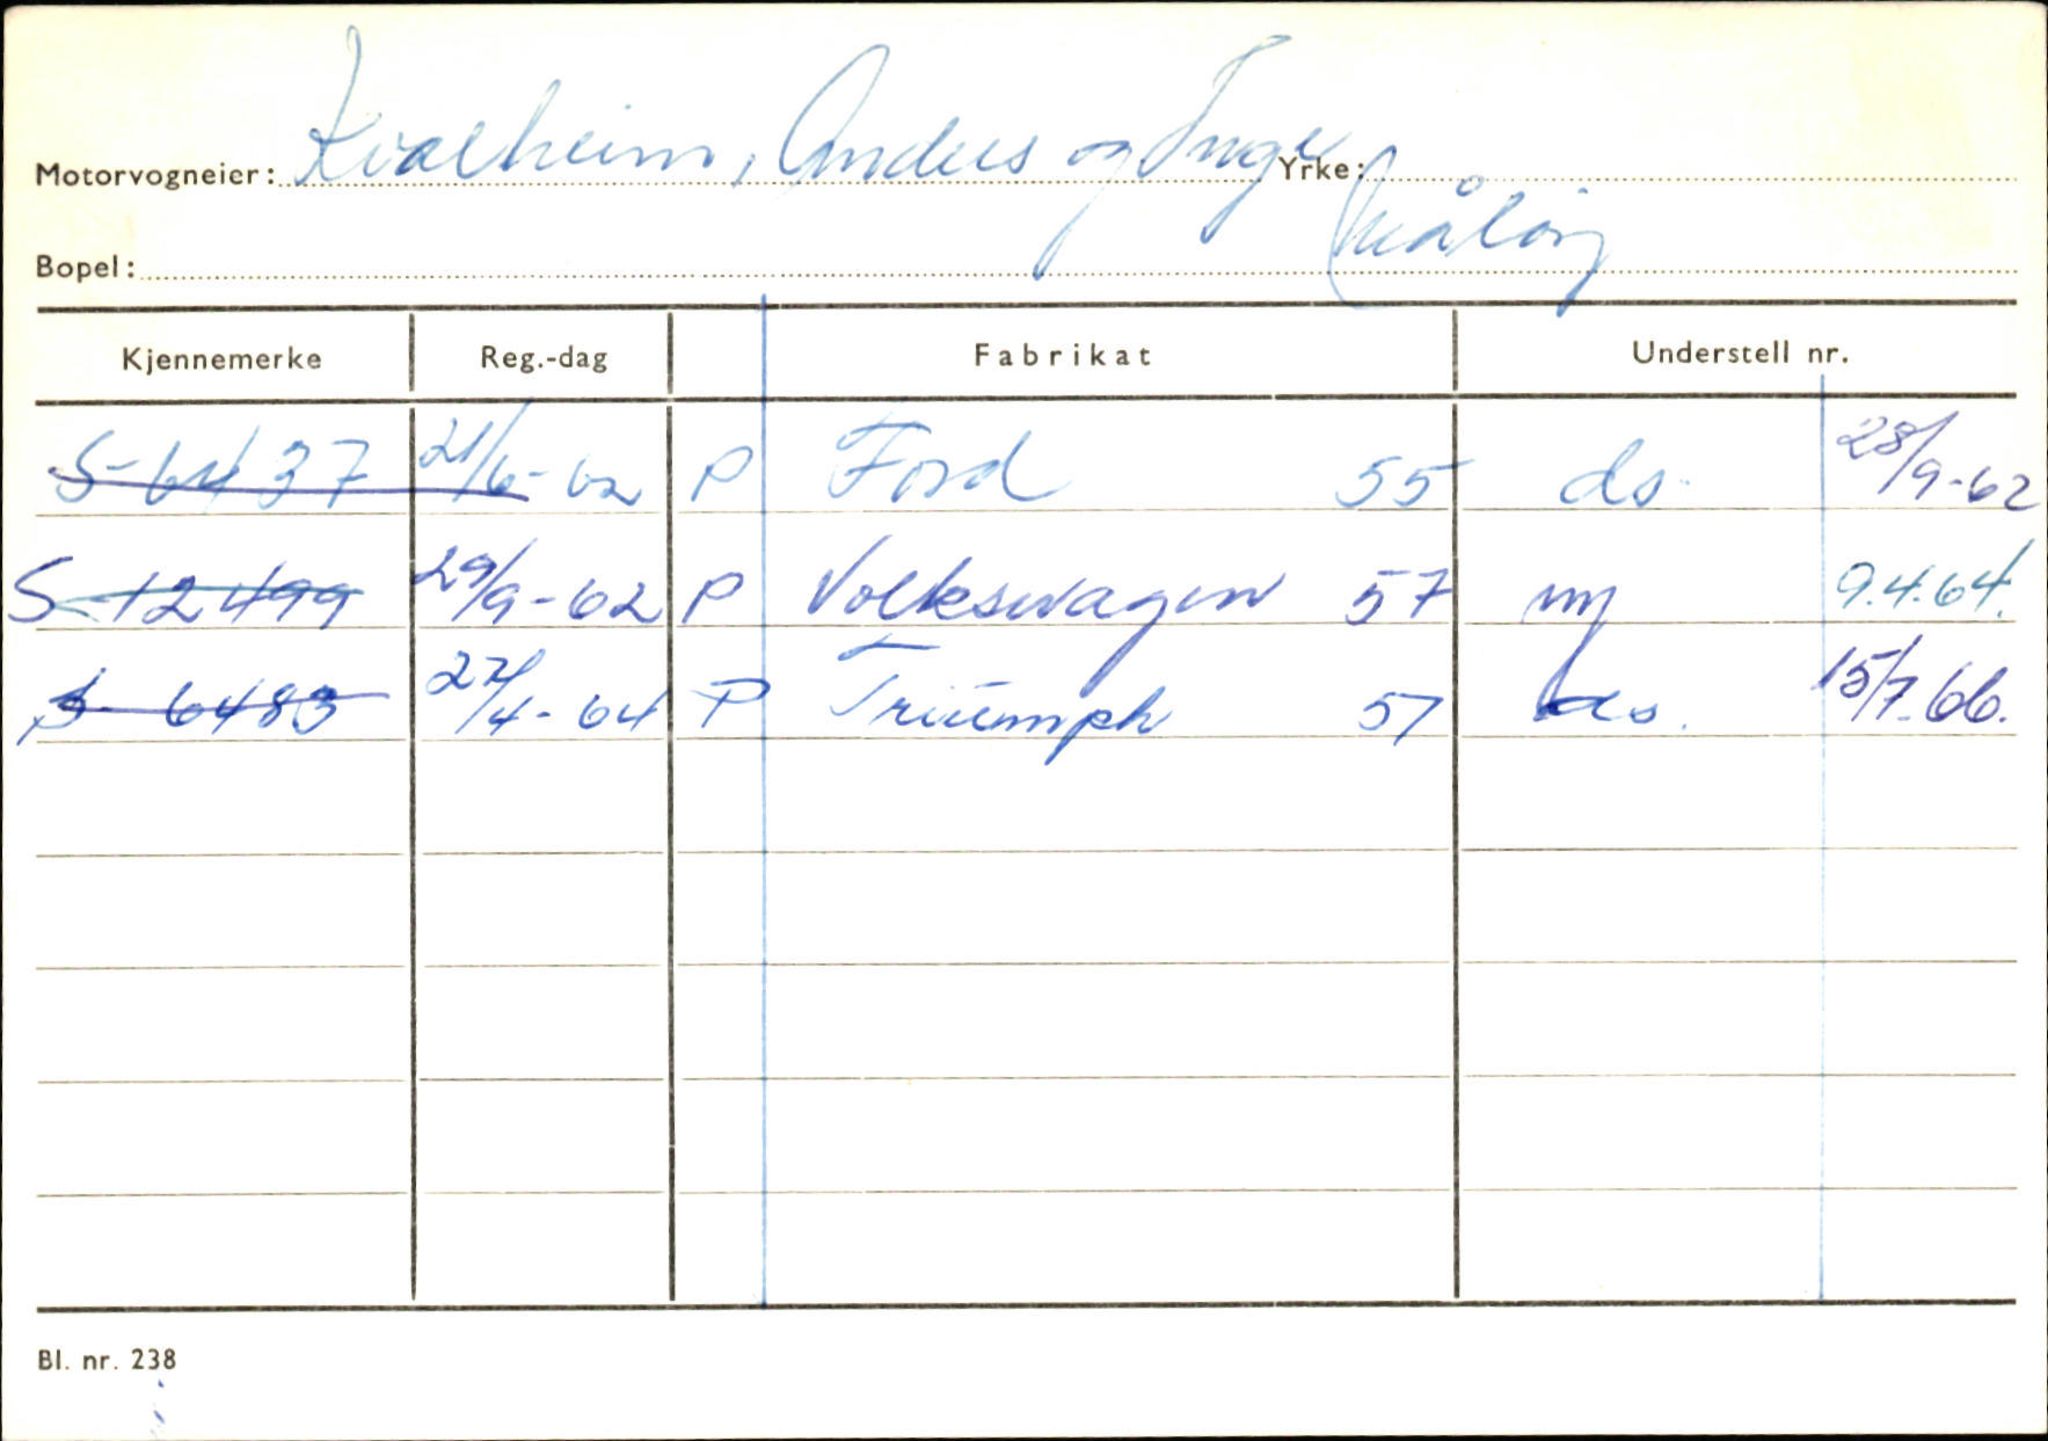 Motorvogneier: Kvalheim, Anders og Inge Yrke:
Måløy
Bopel:
Kjennemerke Reg.-dag Fabrikat Understell nr.
S-6437 21/6-62 P Ford 55 ds. 28/9-62
S-12499 29/9-62 P Volkswagen 57 ny 9.4.64.
S-6483 /4-64 P Triumph 57 ds. 15/7-66.
Bl. nr. 238